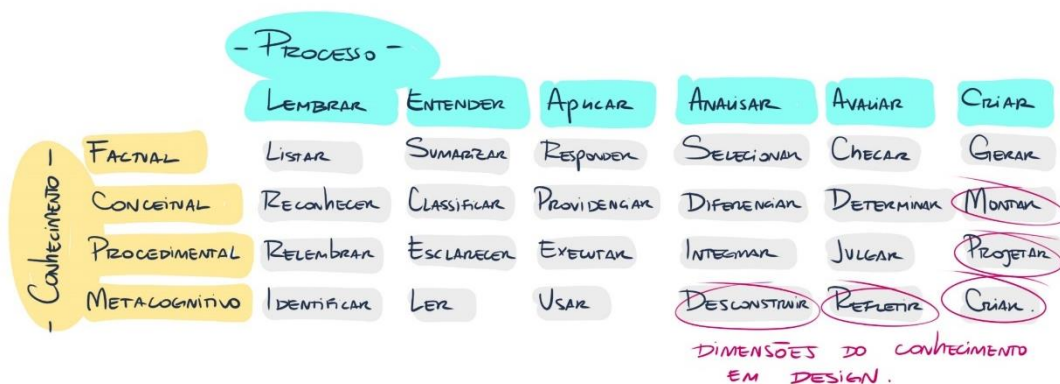 - PROCESSO -
LEMBRAR ENTENDER APLICAR ANALISAR AVALIAR CRIAR
- CONHECIMENTO -
FACTUAL LISTAR SUMARIZAR RESPONDER SELECIONAR CHECAR GERAR
CONCEITUAL RECONHECER CLASSIFICAR PROVIDENCIAR DIFERENCIAR DETERMINAR MONTAR
PROCEDIMENTAL RELEMBRAR ESCLARECER EXECUTAR INTEGRAR JULGAR PROJETAR
METACOGNITIVO IDENTIFICAR LER USAR DESCONSTRUIR REFLETIR CRIAR.
DIMENSÕES DO CONHECIMENTO
EM DESIGN.